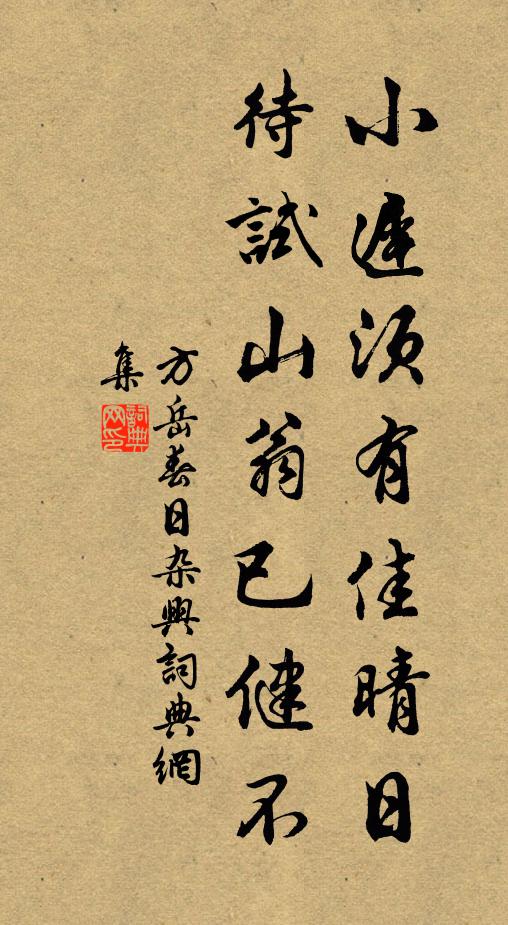 小遲須有佳晴日
待試山翁已健不
方岳春日杂興詞典網
集
詞典網印